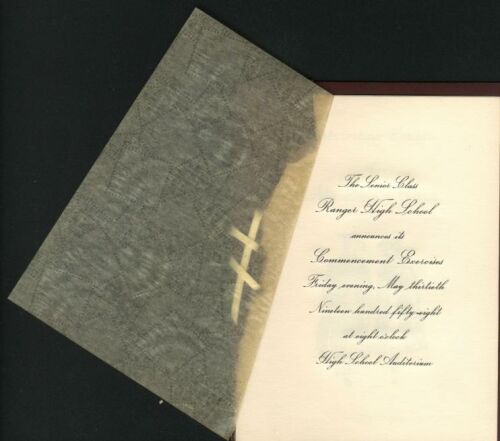 The Senior Class
Ranger High School
announces its
Commencement Exercises
Friday evening, May thirtieth
Nineteen hundred fifty-eight
at eight o'clock
High School Auditorium